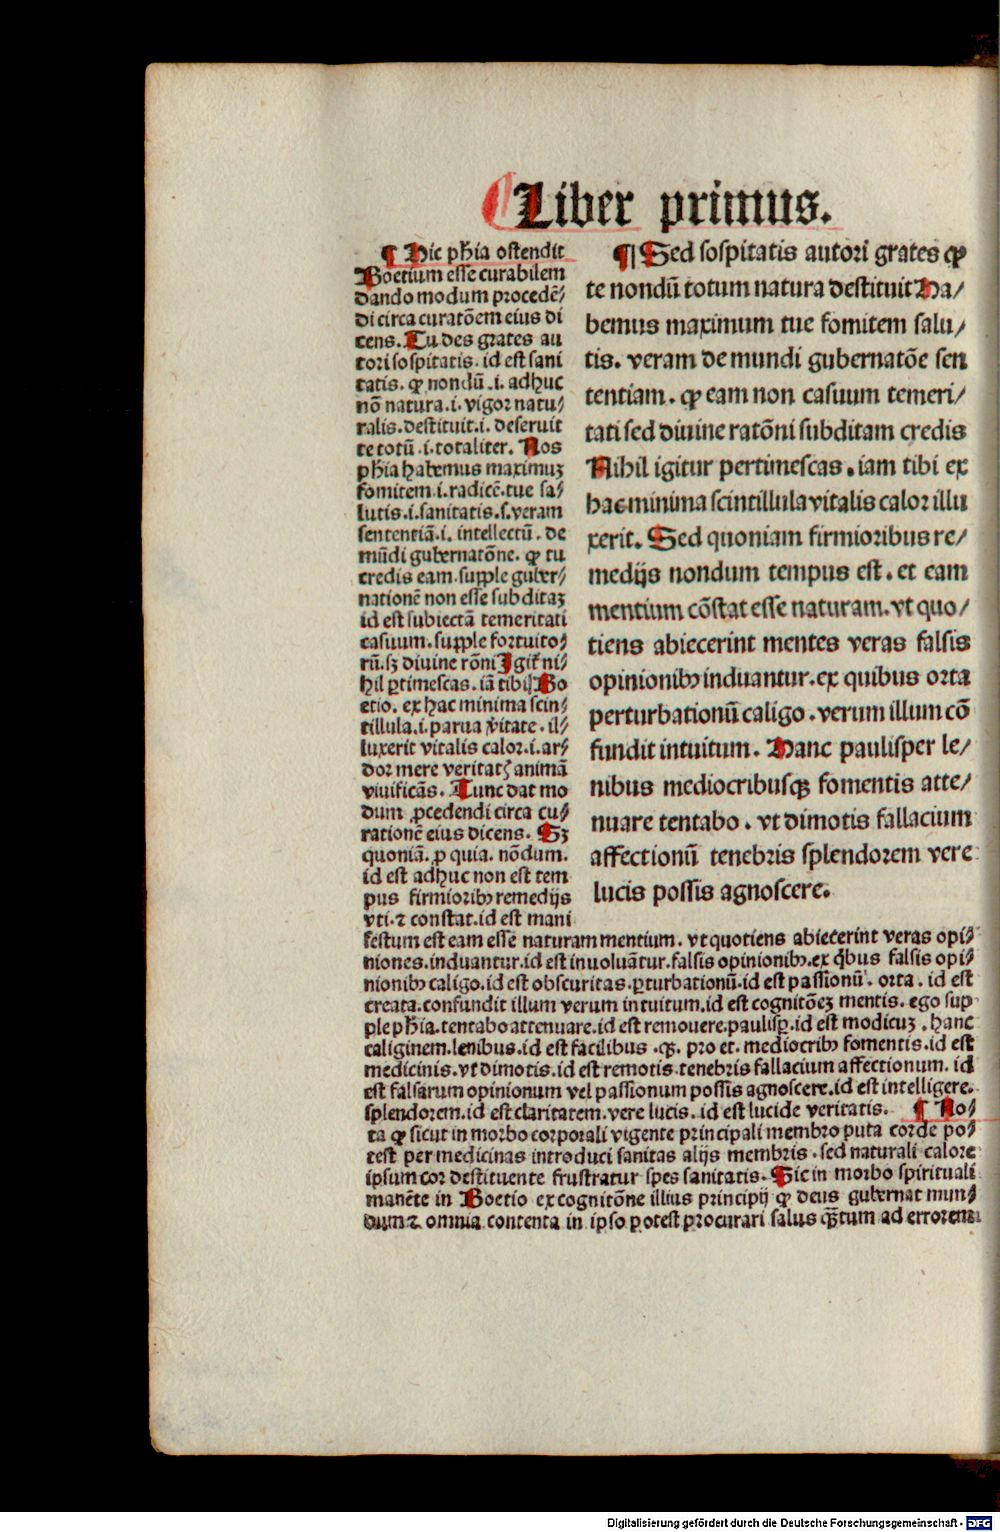 Liber primus.
¶ Hic ph̄ia ostendit
Boetium esse curabilem
dando modum procedē/
di circa curatōem eius di
cens. Tu des grates au
tori sospitatis. id est sani
tatis. ꝙ nondū .i. adhuc
nō natura .i. vigor natu/
ralis. destituit .i. deseruit
te totū .i. totaliter. Nos
ph̄ia habemus maximuꝫ
fomitem .i. radicē. tue sa/
lutis .i. sanitatis .s. veram
sententiā .i. intellectū. de
mūdi gubernatōne. ꝙ tu
credis eam. supple guber/
nationē non esse subditaꝫ
id est subiectā temeritati
casuum. supple fortuito/
rū. sꝫ diuine rōni Igit̄ ni/
hil ꝑtimescas. iā tibi Bo
etio. ex hac minima scin/
tillula .i. parua v̄itate. il/
luxerit vitalis calor .i. ar/
dor mere veritatꝭ animā
viuificās. Tunc dat mo
dum ꝓcedendi circa cu/
rationē eius dicens. Sꝫ
quoniā. ꝓ quia. nōdum.
id est adhuc non est tem
pus firmioribꝰ remedijs
vti. ⁊ constat. id est mani
festum est eam esse naturam mentium. vt quotiens abiecerint veras opi/
niones. induantur. id est inuoluātur. falsis opinionibꝰ. ex q̇bus falsis opi/
nionibꝰ caligo. id est obscuritas. ꝑturbationū. id est passionū. orta. id est
creata. confundit illum verum intuitum. id est cognitōeꝫ mentis. ego sup
ple ph̄ia. tentabo attenuare. id est remouere. paulisꝑ. id est modicuꝫ. hanc
caliginem. lenibus. id est facilibus. qꝫ. pro et. mediocribꝰ fomentis. id est
medicinis. vt dimotis. id est remotis. tenebris fallacium affectionum. id
est falsarum opinionum vel passionum possis agnoscere. id est intelligere.
splendorem. id est claritatem. vere lucis. id est lucide veritatis. ¶ No/
ta ꝙ sicut in morbo corporali vigente principali membro puta corde po/
test per medicinas introduci sanitas alijs membris. sed naturali calore
ipsum cor destituente frustratur spes sanitatis. Sic in morbo spirituali
manēte in Boetio ex cognitōne illius principij ꝙ deus gubernat mun/
dum ⁊ omnia contenta in ipso potest procurari salus quātum ad errorem
¶ Sed sospitatis autori grates ꝙ
te nondū totum natura destituit Ha/
bemus maximum tue fomitem salu/
tis. veram de mundi gubernatōe sen
tentiam. ꝙ eam non casuum temeri/
tati sed diuine ratōni subditam credis
Nihil igitur pertimescas. iam tibi ex
hac minima scintillula vitalis calor illu
xerit. Sed quoniam firmioribus re/
medijs nondum tempus est. et eam
mentium cōstat esse naturam. vt quo/
tiens abiecerint mentes veras falsis
opinionibꝰ induantur. ex quibus orta
perturbationū caligo. verum illum cō
fundit intuitum. Hanc paulisper le/
nibus mediocribusqꝫ fomentis atte/
nuare tentabo. vt dimotis fallacium
affectionū tenebris splendorem vere
lucis possis agnoscere.
Digitalisierung gefördert durch die Deutsche Forschungsgemeinschaft - DFG